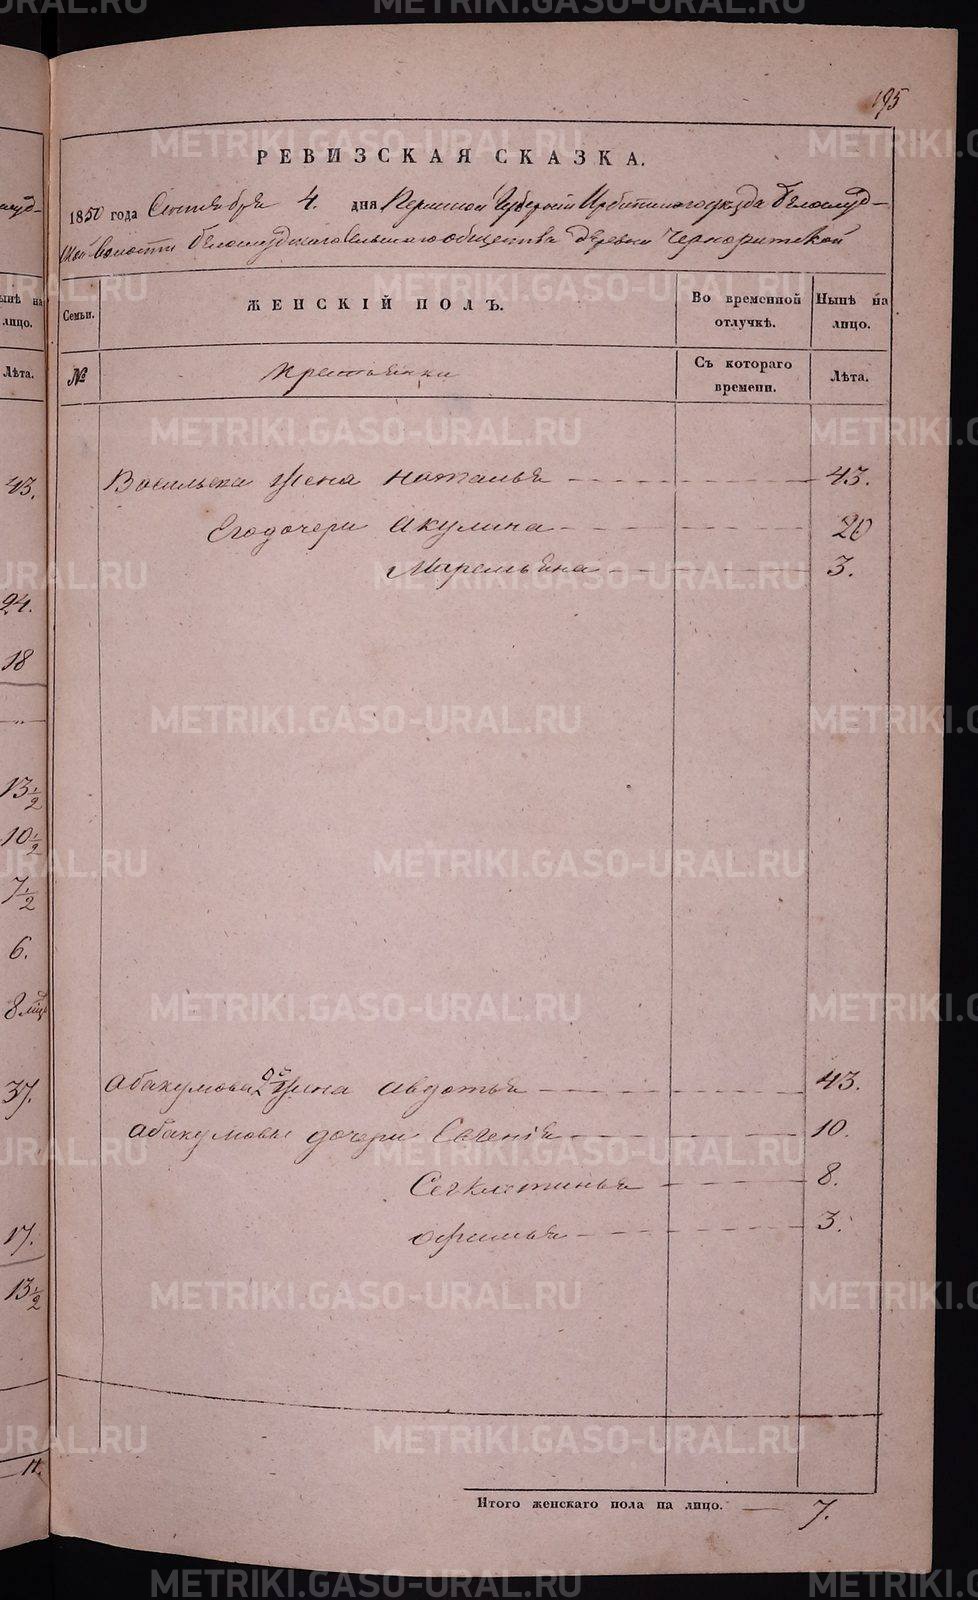 195
РЕВИЗСКАЯ СКАЗКА.
1850 года Сентября 4. дня Пермской Губернiи Ирбитскаго уезда Белослуд-
ской волости Белослудскаго Сельскаго общества деревни Черноритской
Семьи.
ЖЕНСКIЙ ПОЛЪ.
Во временной отлучкѣ.
Нынѣ на лицо.
№
Крестьянки
Съ котораго времени.
Лѣта.
Васильева жена Наталья 43.
Его дочери Акулина 20
Маремьяна 3.
Абакумова 2я жена Авдотья 43.
Абакумовы дочери Евгенiя 10.
Секлетинья 8.
Офимья 3.
Итого женскаго пола на лицо. 7.
ынѣ на
лицо.
Лѣта.
43.
24.
18
13 1/2
10 1/2
7 1/2
6.
8 мѣс
37.
17.
13 1/2
11.
METRIKI.GASO-URAL.RU